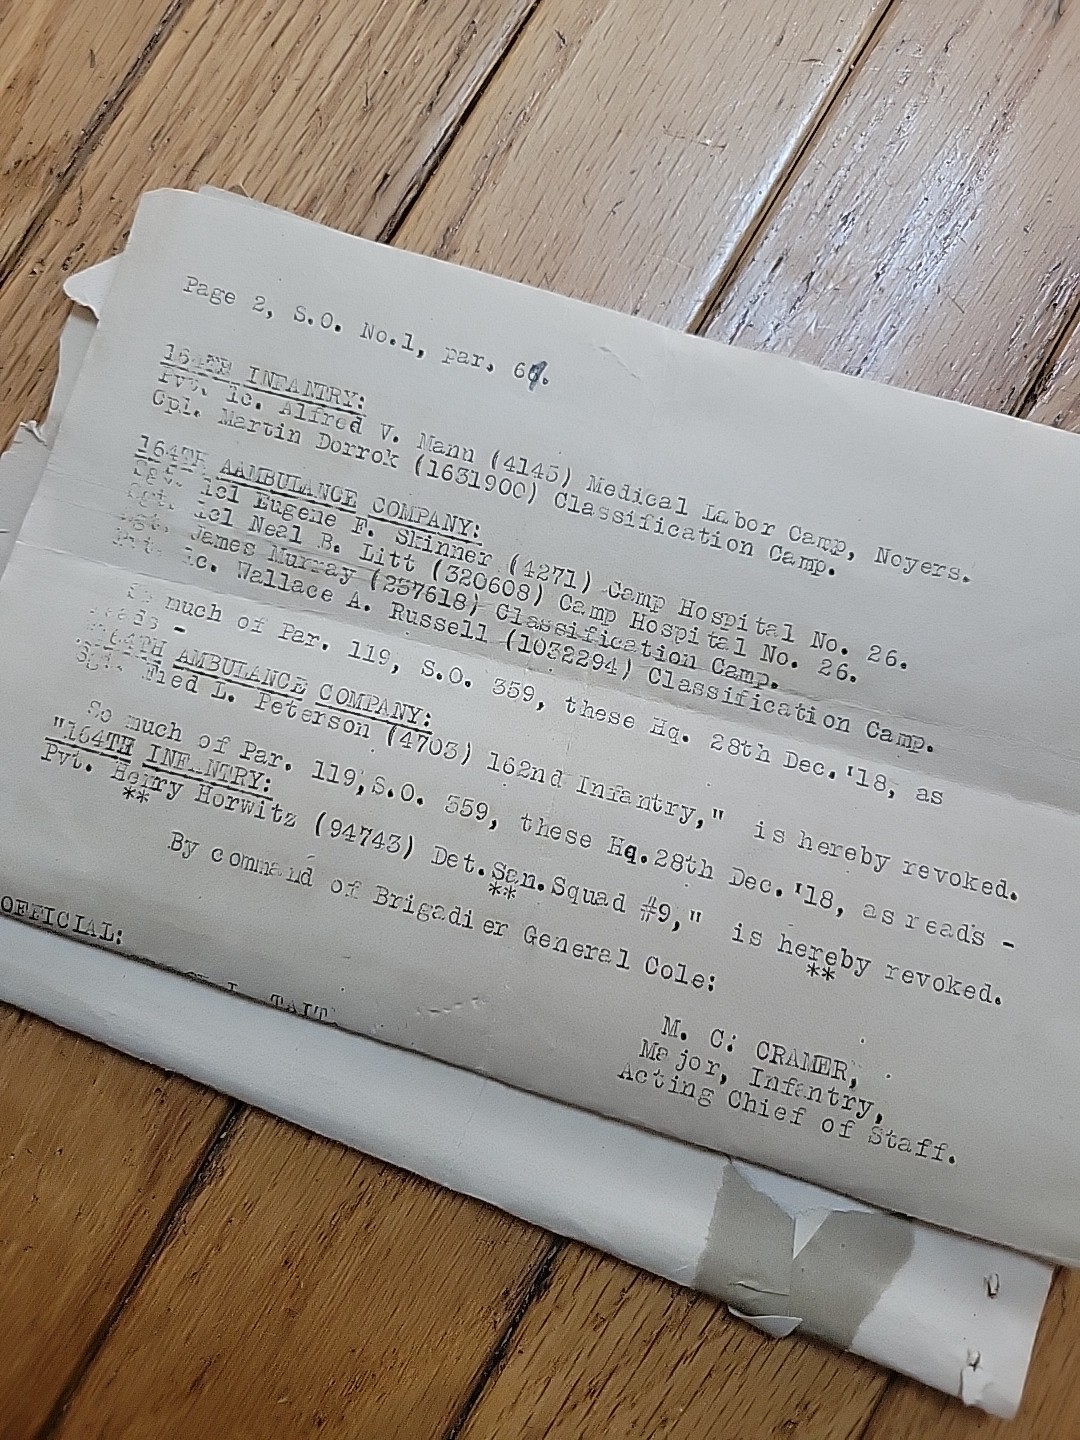 Page 2, S.O. No.1, par, 6
164TH INFANTRY:
Pvt. 1c. Alfred V. Mann (4145) Medical Labor Camp, Noyers.
Cpl. Martin Dorrok (1631900) Classification Camp.
164TH AAMBULANCE COMPANY:
Sgt. 1cl Eugene F. Skinner (4271) Camp Hospital No. 26.
Sgt. 1cl Neal B. Litt (320608) Camp Hospital No. 26.
James Murray (237618) Classification Camp.
Pvt. 1c. Wallace A. Russell (1032294) Classification Camp.
So much of Par. 119, S.O. 359, these Hq. 28th Dec.'18, as
reads -
"164TH AMBULANCE COMPANY:
Sgt. Fred L. Peterson (4703) 162nd Infantry," is hereby revoked.
So much of Par. 119,S.O. 359, these Hq.28th Dec.'18, as reads -
"164TH INFANTRY:
Pvt. Henry Horwitz (94743) Det.San.Squad #9," is hereby revoked.
** ** **
By command of Brigadier General Cole:
M. C. CRAMER,
Major, Infantry,
Acting Chief of Staff.
OFFICIAL:
TAIT